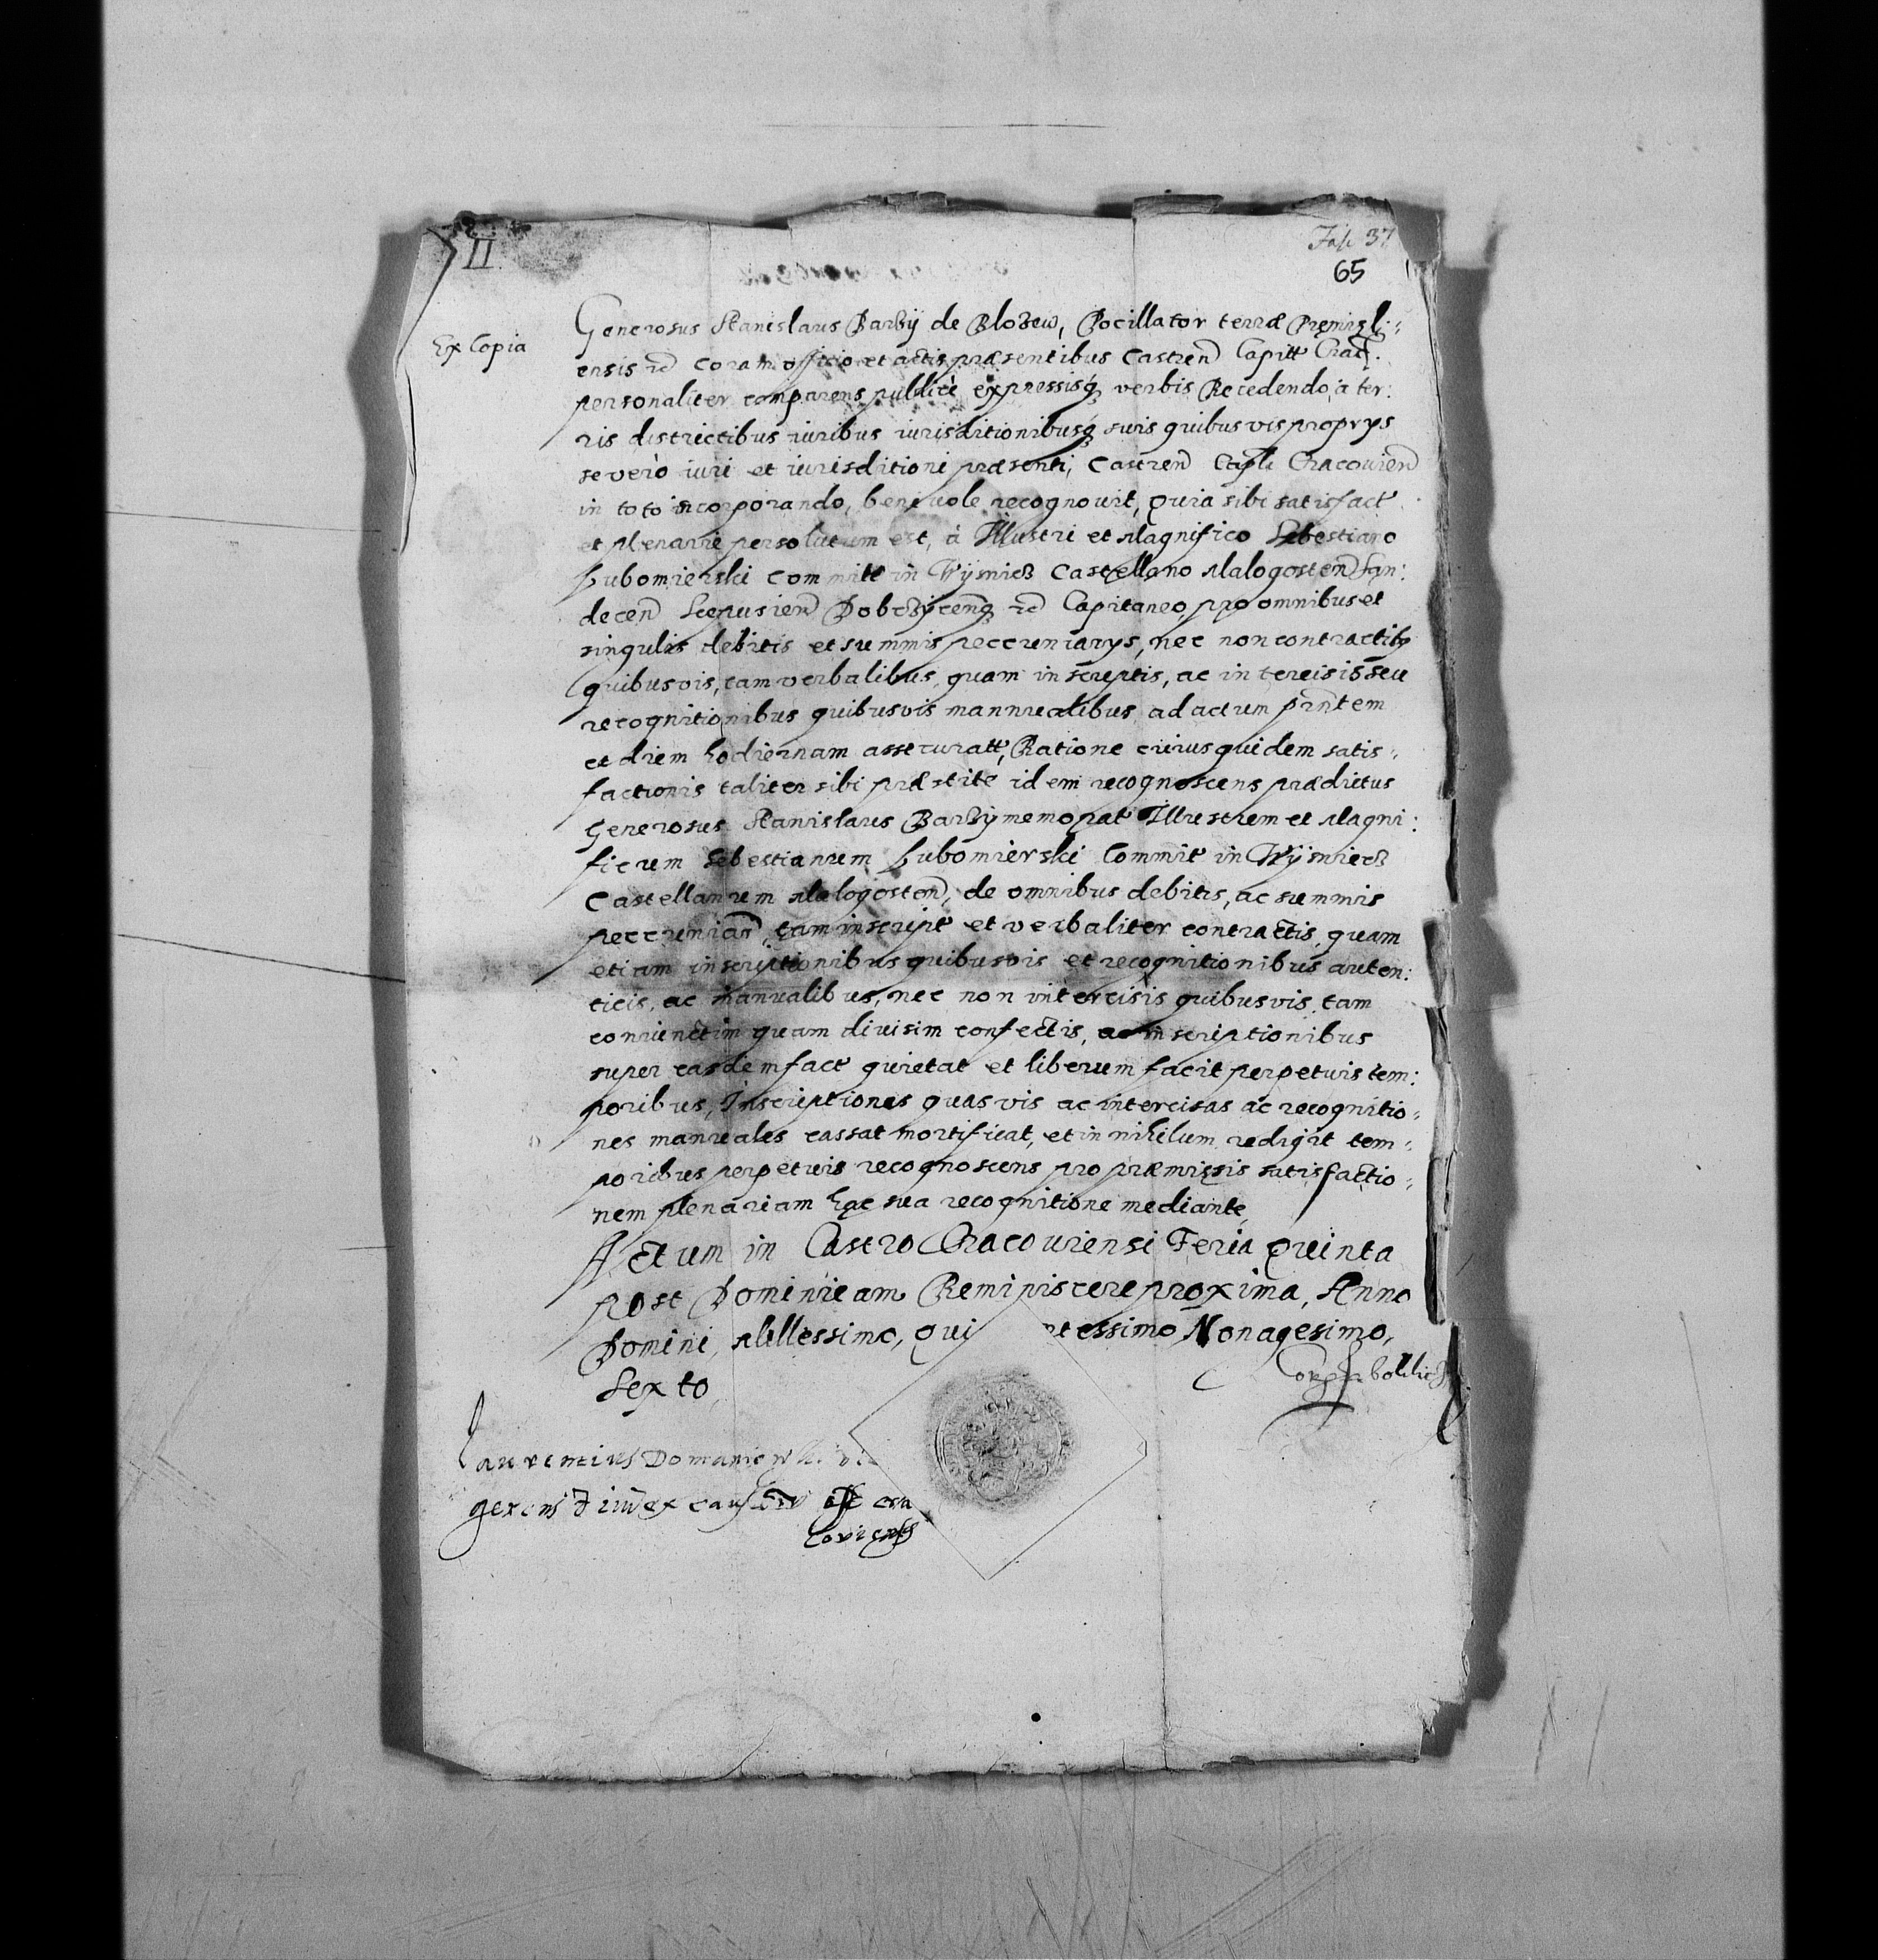 II
Fasc 37
65
Ex Copia
Generosus Stanislaus Barzÿ de Blozew, Pocillator terræ Præmisli:
ensis etc coram officio et actis præsentibus Castren Capitt Crac.
personaliter comparens publicè expressisq verbis Recedendo, à ter:
ris districtibus iuribus iurisditionibusq suis quibusvis proprys
se verò iuri et iurisditioni præsenti, Castren Capli Cracovien
in toto incorporando, benevole recognovit, Quia sibi satisfact
et plenarie persolutum est, à Illustri et Magnifico Sebestiano
Lubomierski Commite in Wÿsnicz Castellano Malogosten San:
decen Scepusien Dobczÿcenq etc Capitaneo, pro omnibus et
singulis debitis et summis peccuniarys, nec non contractibq
quibusvis, tam verbalibus, quam inscriptis, ac intercisis seu
recognitionibus quibusvis mannualibus, ad actum pñtem
et diem hodiernam assecuratt, Ratione cuius quidem satis-
factionis taliter sibi præstite idem recognoscens prædictus
Generosus Stanislaus Barzÿ memorat Illustrem et Magni:
ficum Sebestianum Lubomierski Commit in Wÿsnicz
Castellanum Malogosten, de omnibus debitis, ac summis
peccuniar, tam inscript et verbaliter contractis, quam
etiam inscriptionibus quibusvis et recognitionibus auten:
ticis, ac manualibus, nec non intercisis quibusvis, tam
coniunctim quam divisim confectis, ac inscriptionibus
super easdem fact quietat et liberum facit perpetuis tem:
poribus, Inscriptiones quasvis ac intercisas ac recognitio-
nes manuales cassat mortificat, et in nihilum redigit tem-
poribus perpetuis recognoscens pro præmissis satisfactio-
nem plenariam hac sua recognitione mediante,
Actum in Castro Cracouiensi Feria Quinta
post Dominicam Reminiscere proxima, Anno
Domini, Millessimo, Qui ntessimo Nonagesimo,
Sexto,
Laurentius
gerens Iudex Cra
coviens